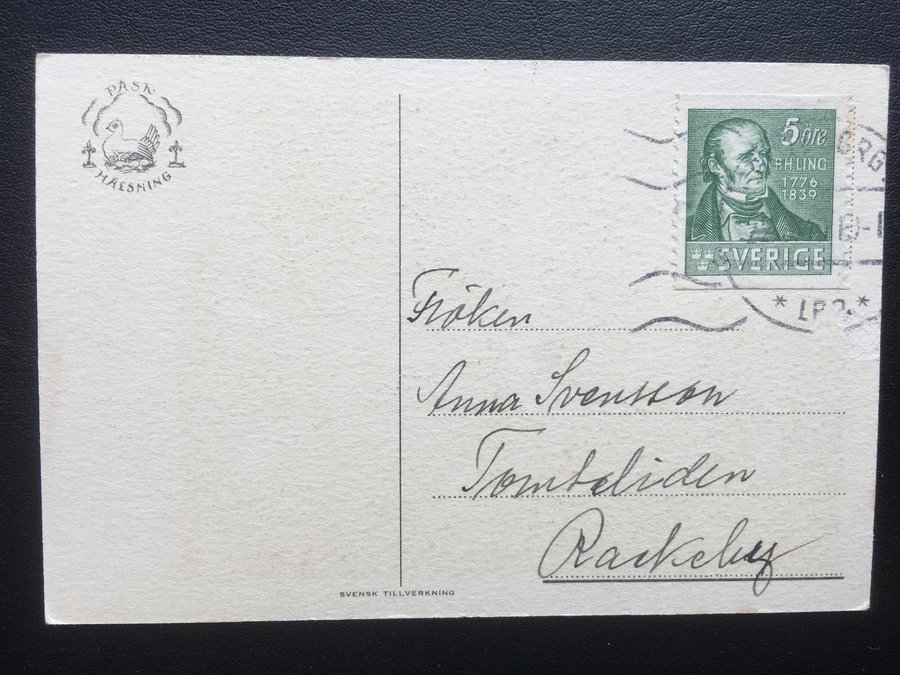 PÅSK
HÄLSNING
5 ÖRE
P.H. LING
1776
1839
SVERIGE
* LBP. *
Fröken
Anna Svensson
Tomteliden
Rackeby
SVENSK TILLVERKNING